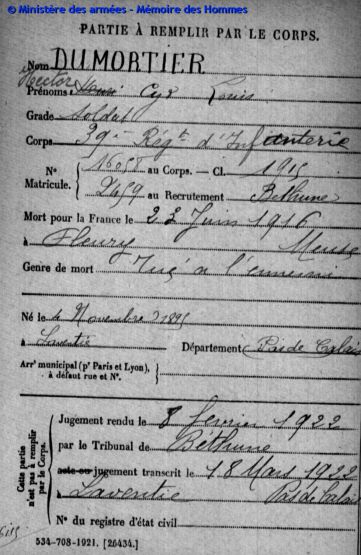 © Ministère des armées - Mémoire des Hommes
PARTIE À REMPLIR PAR LE CORPS.
Nom DUMORTIER
Hector
Prénoms Henri Cyr Louis
Grade Soldat
Corps 39e Régt d'Infanterie
N° 16058 au Corps. — Cl. 1915
Matricule. 2459 au Recrutement Béthune
Mort pour la France le 23 Juin 1916
à Fleury Meuse
Genre de mort Tué à l'ennemi
Né le 4 Novembre 1895
à Laventie Département Pas de Calais
Arrt municipal (pr Paris et Lyon),
à défaut rue et N°.
Cette partie
n'est pas à remplir
par le Corps.
Jugement rendu le 8 février 1922
par le Tribunal de Béthune
acte ou jugement transcrit le 18 Mars 1922
à Laventie Pas de Calais
N° du registre d'état civil
534-708-1921. [26434.]